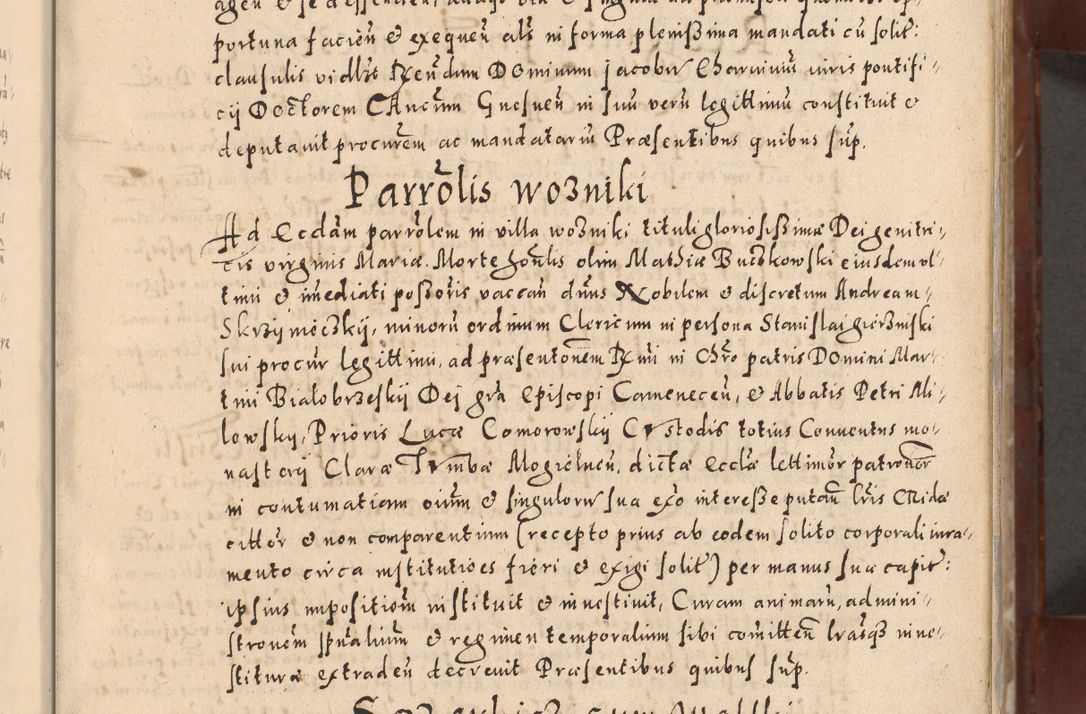 portuna facień & exequeń als in forma plenissima mandati cū solit:
clausulis vidlzt Rxeūdum Dominum Jacobū Charniniū viris pontifi-
cij Doctorem CAncrūm Gnesneń in suū verū legittimū constituit &
deputavit procurem ac mandatariū Præsentibus quibus sup.
Parrōlis wozniki
Ad Eccłam parrōlem in villa wozniki tituli gloriosissimæ Dei genitri-
cis virginis Mariæ. Morte honlis olim Mathiæ Buczkowski eiusdem vl-
timi & imediati possoris vaccań dnus Nobilem & discretum Andream
Skrzijmeczkij, minorū ordinum Clericum in persona Stanislai gierzniski
sui procur legittimi, ad præsentonem Rxmi in Chrō patris Domini Mar-
tini Białobrzeskij Dej grā Episcopi Cameneceń, & Abbatis Petri Mi-
lowskij, Prioris Lucæ Comorowskij Custodis totius Conventus mo-
nasterij Claræ Tumbæ Mogielneń. dictæ Ecclæ lettimor patronor
in contumatiam oium & singulorū sua exo interesse putań lris Cridæ
citter & non comparentium (recepto prius ab eodem solito corporali iura-
mento circa institutioes fieri & exigi solit) per manus suæ capit:
ipsius impositiom instituit & investivit, Curam animarū, admini-
stronem spūalium & regimen temporalium sibi comitteń lrasqz inve-
stituræ extradeń decrevit Præsentibus quibus sup.